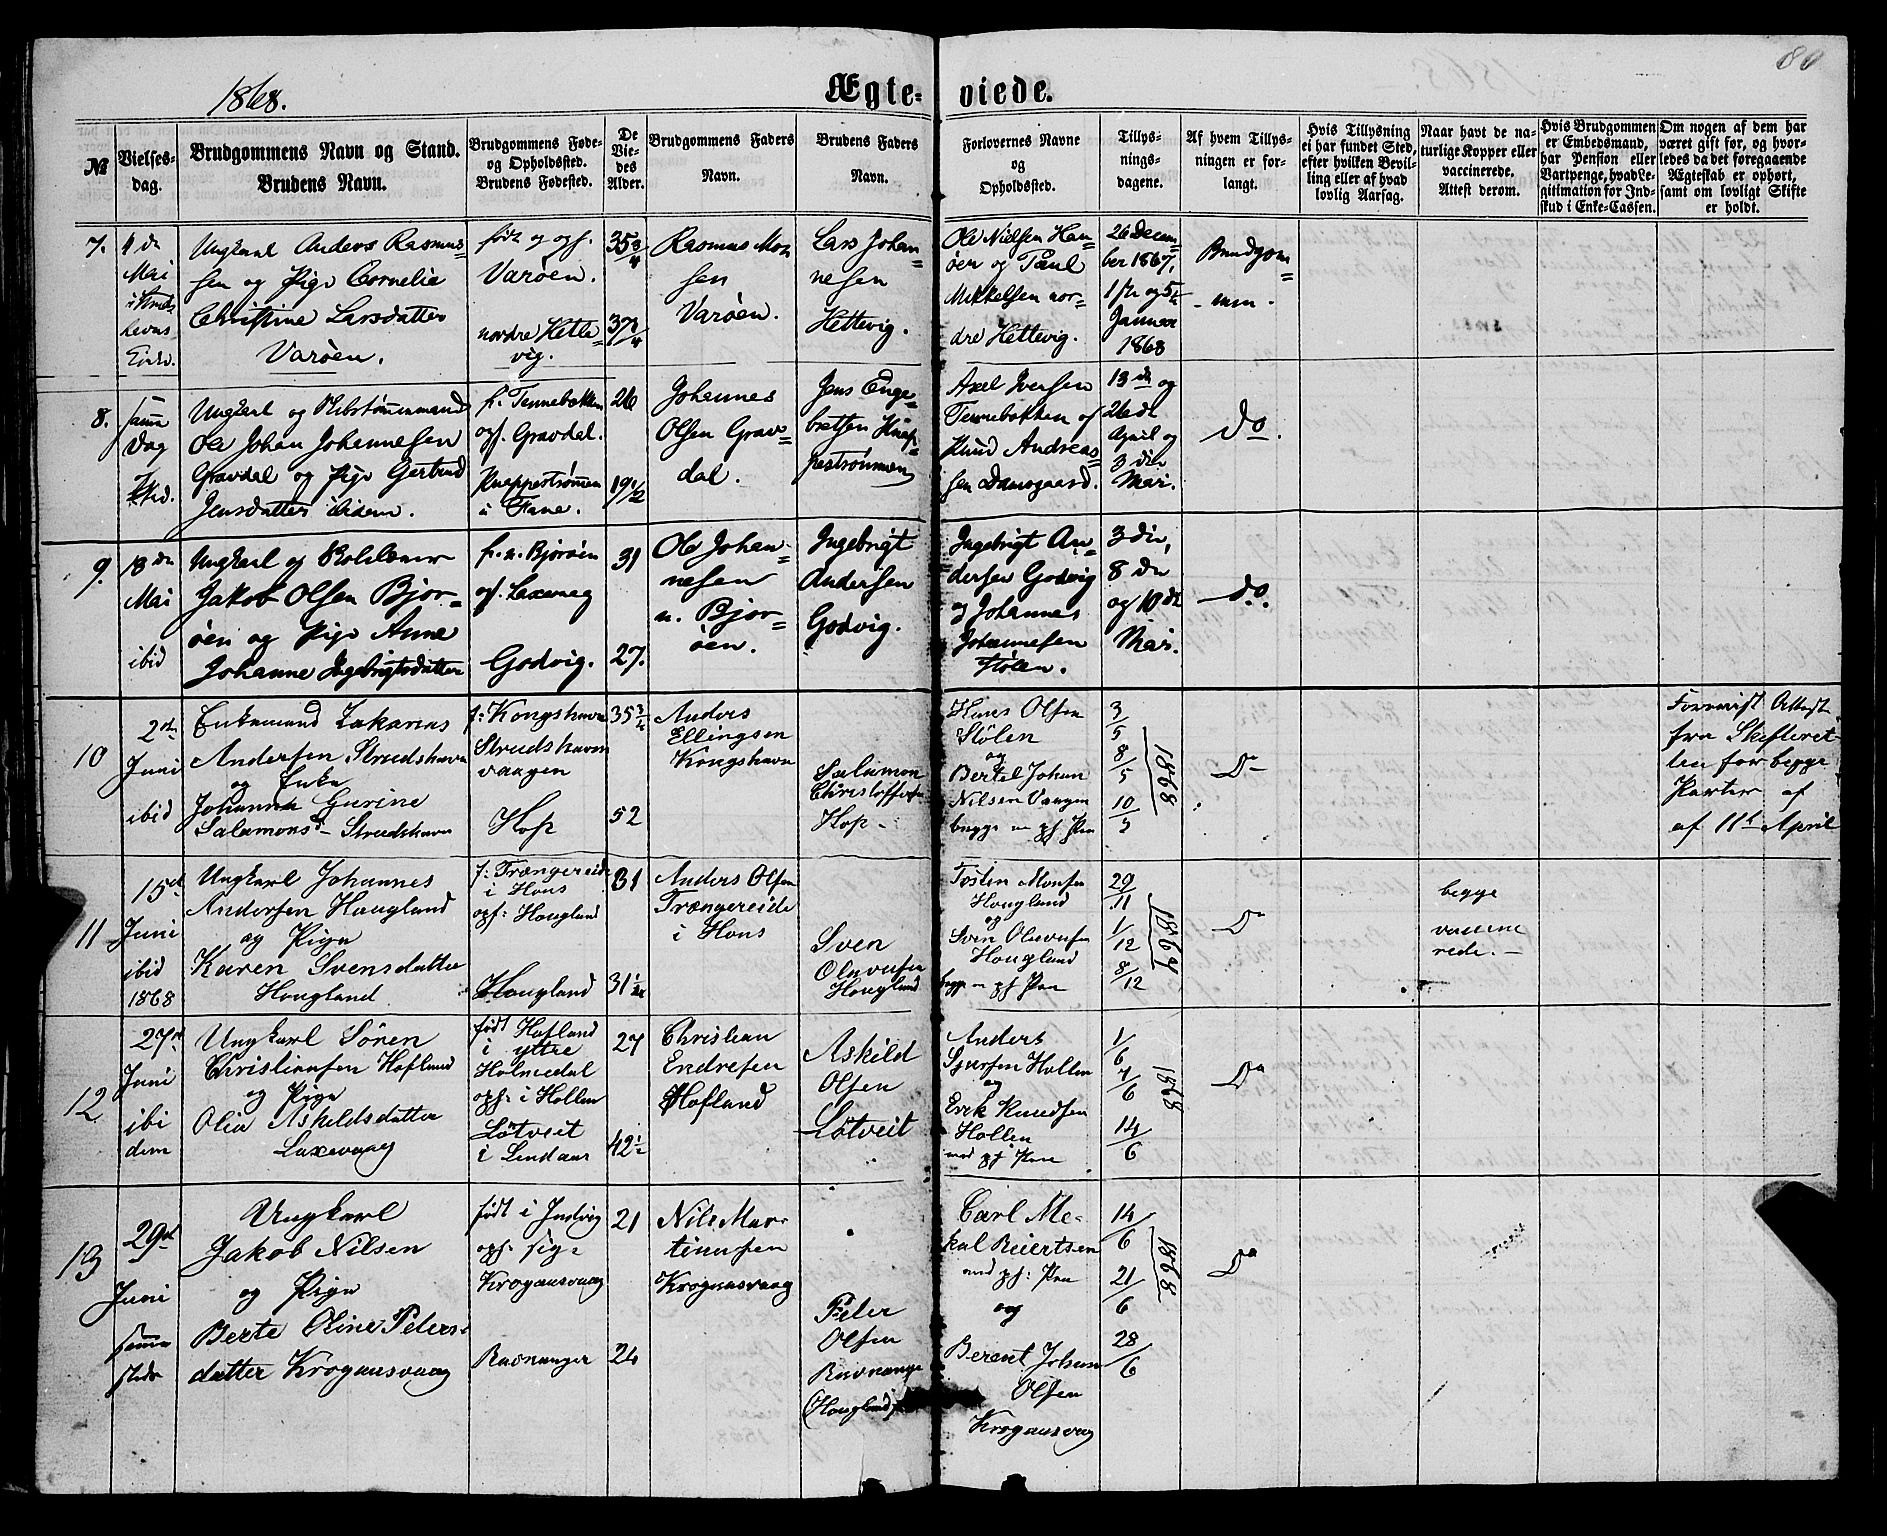 1868.
Ægte-viede.
80
№
Vielses-
dag.
Brudgommens Navn og Stand.
Brudens Navn.
Brudgommens Føde-
og Opholdssted.
Brudens Fødested.
De
Vie-
des
Alder.
Brudgommens Faders
Navn.
Brudens Faders
Navn.
Forlovernes Navne
og
Opholdssted.
Tillys-
nings-
dagene.
Af hvem Tillys-
ningen er for-
langt.
Hvis Tillysning
ei har fundet Sted,
efter hvilken Bevil-
ling eller af hvad
lovlig Aarsag.
Naar havt de na-
turlige Kopper eller
vaccinerede.
Attest derom.
Hvis Brudgommen
er Embedsmand,
har Pension eller
Vartpenge, hvad Le-
gitimation for Ind-
skud i Enke-Cassen.
Om nogen af dem har
været gift før, og hvor-
ledes da det foregaaende
Ægteskab er ophørt,
samt om lovligt Skifte
er holdt.
7.
4 de
Mai
Ungkarl Anders Rasmus-
sen og Pige Cornelia
Christine Larsdatter
Varøen.
født og opf.
Varøen.
nordre Hette-
vig.
35 3/4
37 3/4
Rasmus Mon
sen
Varøen.
Lars Johan-
nesen
Hettevig.
Ole Nielsen Han-
øen og Paul
Mikkelsen nor-
dre Hettevig.
26 Decem-
ber 1867,
1ste og 5te
Januar
1868
Brudgom-
men.
8.
samme
Dag
Ungkarl og Tilstømmermand
Ole Johan Johannesen
Gravdal og Pige Gertrud
Jensdatter ibidem.
f. Tennebekken
opf. Gravdal.
Knappestrømmen
i Fane.
26
19 1/2
Johannes
Olsen Grav-
dal.
Jens Enge-
bretsen Knap-
pestrømmen
Axel Iversen
Tennebekken og
Knud Andreas-
sen Damsgaard.
13 de og
26de
April og
3 die
Mai.
do.
9.
18 de
Mai
ibid
Ungkarl og
Jakob Olsen Bjor-
øen og Pige Anne
Johanne Ingebrigtsdatter
f. n. Bjorøen
opf. Laxevaag
Godvig.
31
27.
Ole Johan-
nesen
n. Bjor-
øen.
Ingebrigt
Andersen
Godvig.
Ingebrigt An-
dersen Godvig
og Johannes
Johannesen
Stølen.
3 die,
8 de
og 10 de
Mai.
do.
10
2den
Juni
ibid
Enkemand Zakarias
Andersen Strudshavn
og Enke
Johanna Gurine
Salamonsd. Strudshavn
f: Kongshavn
Strudshavn
vaagen
Hop
35 3/4
52
Anders
Ellingsen
Kongshavn
Salamon
Christoffersen
Hop.
Hans Olsen
Stølen
og
Bertel Johan
Nilsen Vaagen
begge m pf Pen
3/5
8/5
10/5
1868
Do
Forevist Attest
fra Skifteret-
ten for begge
Parter af
af 11te April
11
15d
Juni
ibid
1868
Ungkarl Johannes
Andersen Hougland
og Pige
Karen Svensdatter
Hougland
f: Trængereide
i Hous
opf: Hougland
Hougland
31
31 1/2
Anders Olsen
Trængereide
i Hous
Sven
Olavusen
Hougland
Tosten Monsen
Hougland
og
Sven Olavusen
Hougland
begge m pf Pen
29/11
1/12
8/12
1867
Do
begge
vaccine
rede.
12
27d
Juni
ibi
dem
Ungkarl Søren
Christiansen Hofland
og Pige
Olia Askildsdatter
Laxevaag
født Hofland
i ytre
Holmedal
opf: i Hollen
Løtveit
i Lindaas
27
42 1/2
Christian
Endresen
Hofland
Askild
Olsen
Løtveit
Anders
Sjursen Hollen
og
Erik Knudsen
Hollen
med pf Pen
1/6
7/6
14/6
1868
Do
13
29d
Juni
samme
steds
Ungkarl
Jakob Nilsen
og Pige
Berte Oline Peters-
datter Krogaasvaag
født i Indvig
opf: sig:
Krogaasvaag
Ravnanger
21
26
Nils Mar-
tinusen
Krogaasvaag
Peder
Olsen
Ravnange
(Hougland)
Carl Me-
kal Reiertsen
med pf: Pen
og
Berent Johan
Olsen
Krogaasvaag
14/6
21/6
28/6
1868
Do